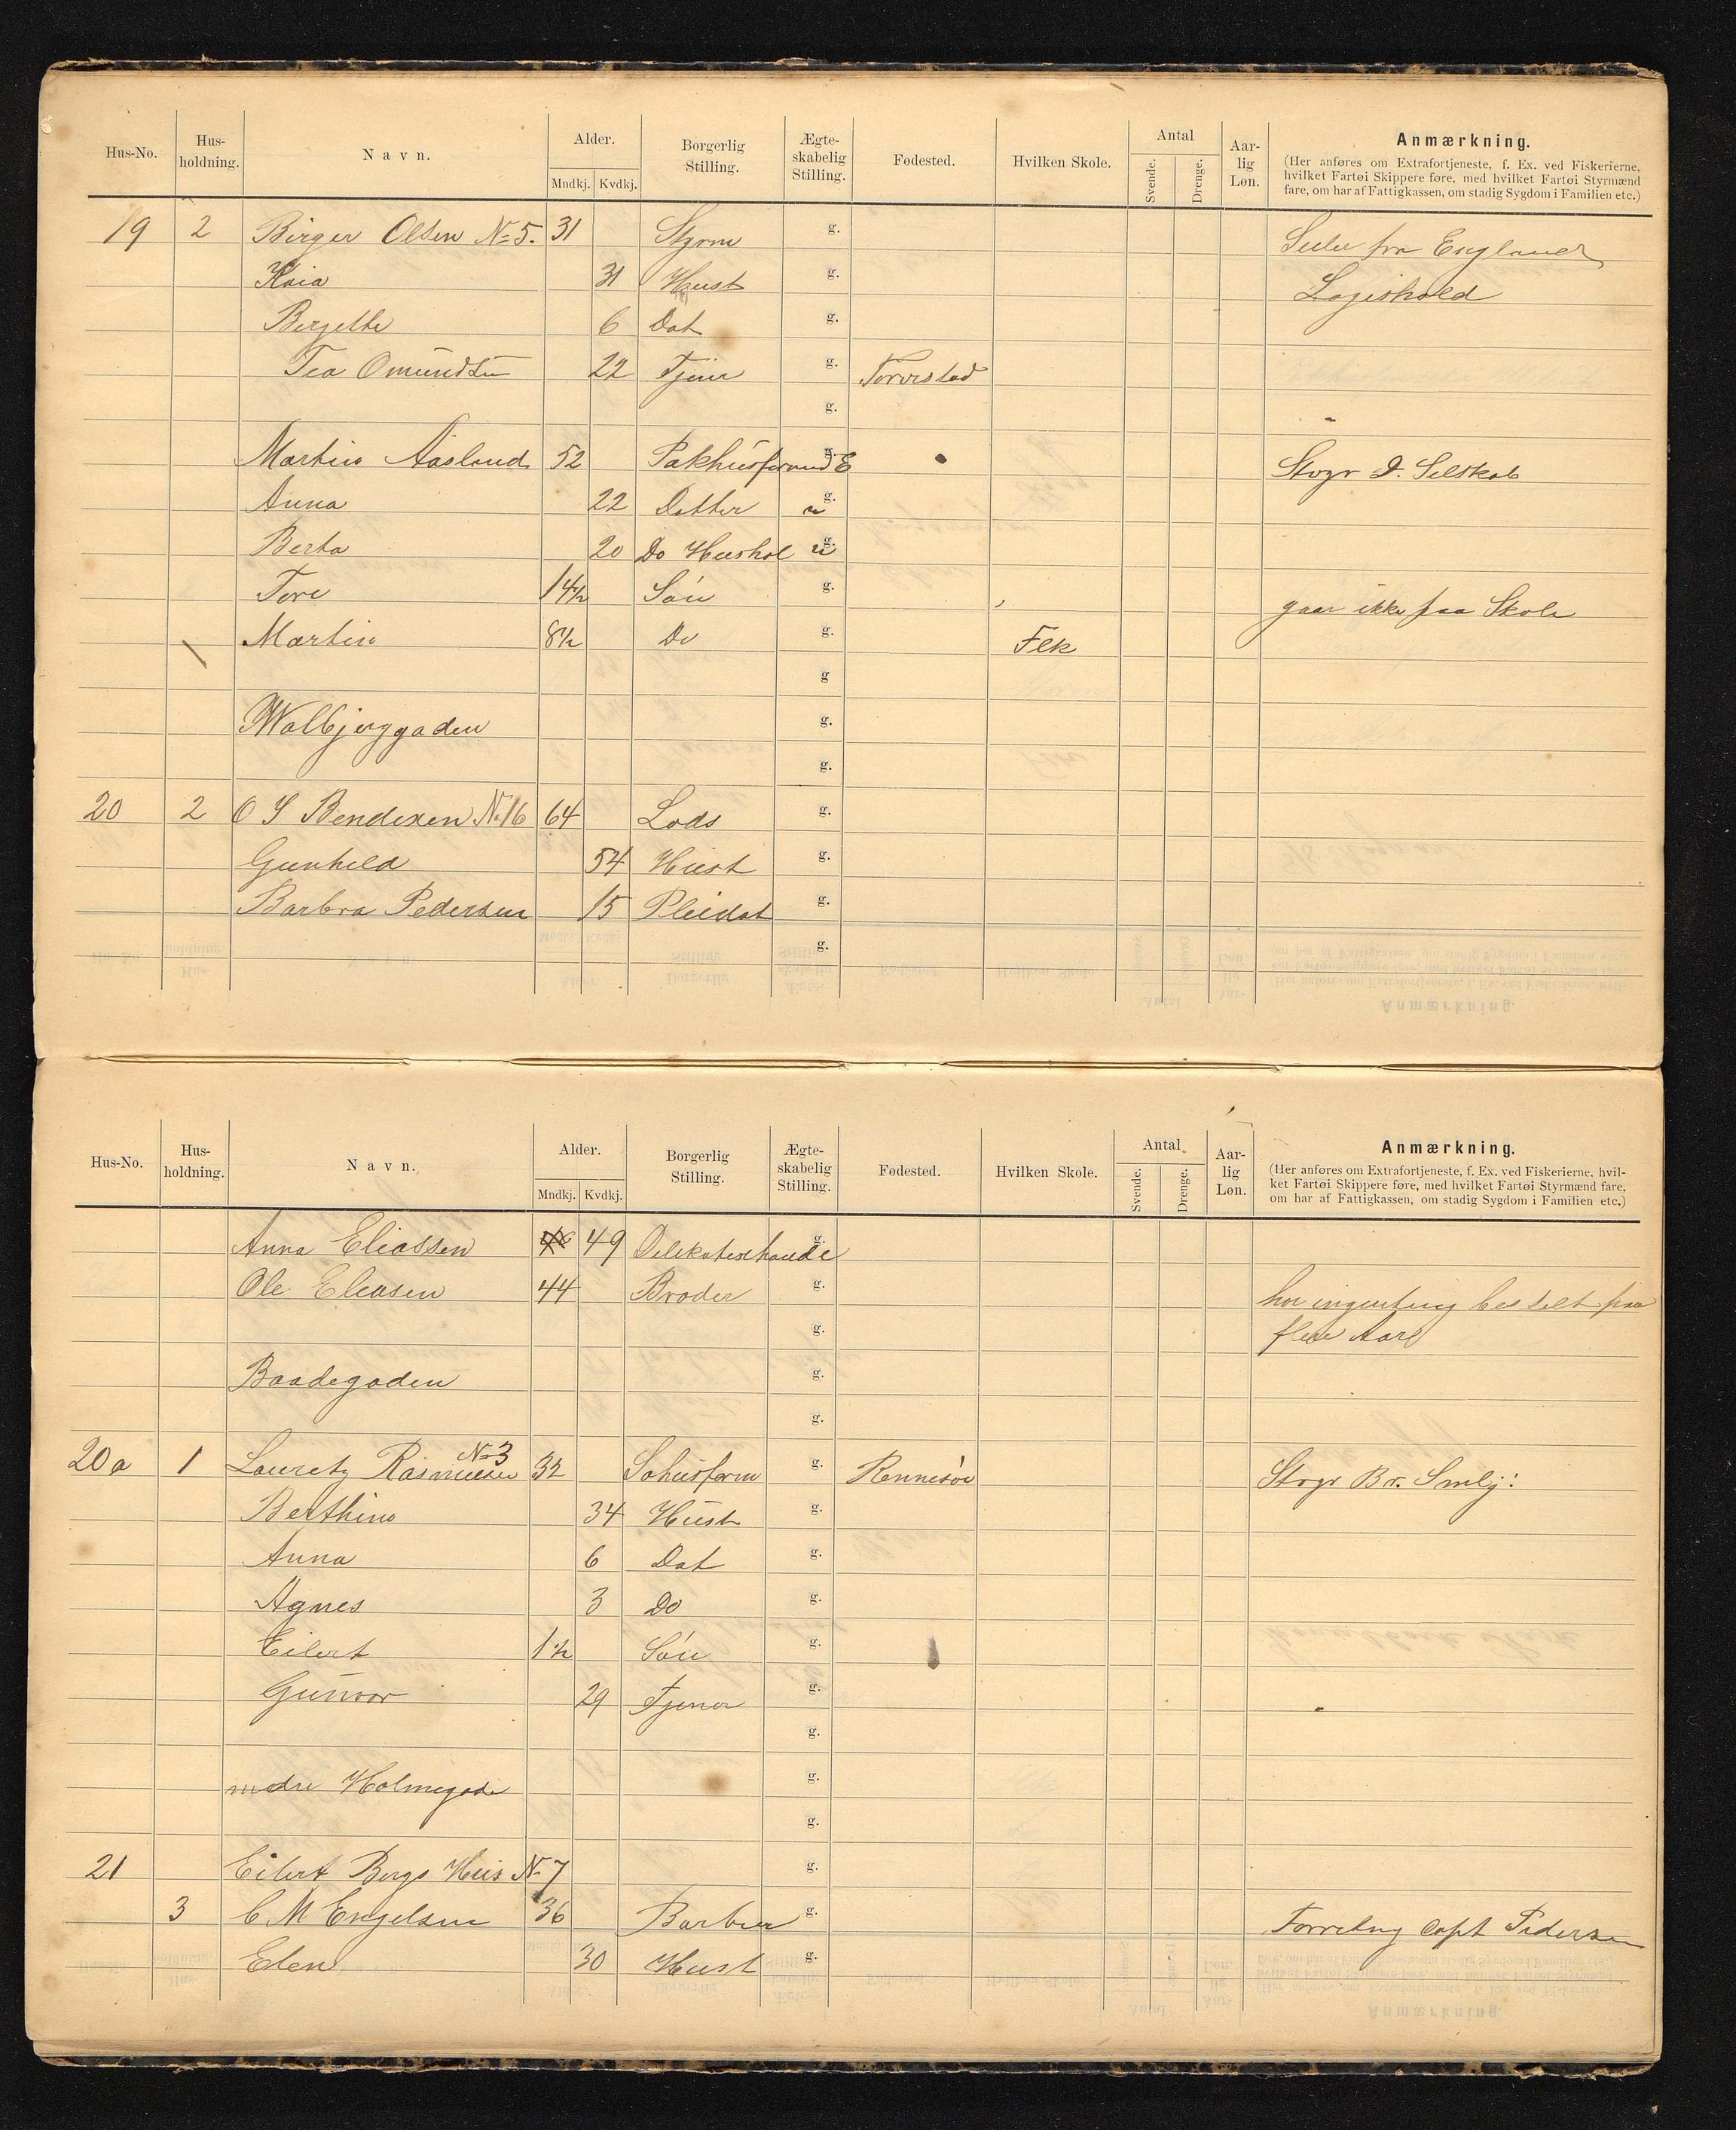 Hus-No. Hus-holdning. Navn. Alder. Mndkj. Kvdkj. Borgerlig Stilling. Ægte-skabelig Stilling. Fødested. Hvilken Skole. Antal Svende. Drenge. Aar-lig Løn. Anmærkning.
(Her anføres om Extrafortjeneste, f. Ex. ved Fiskerierne,
hvilket Fartøi Skippere føre, med hvilket Fartøi Styrmænd
fare, om har af Fattigkassen, om stadig Sygdom i Familien etc.)
19 2 Birger Olsen No 5. 31 Styrm g. fra England
Kaia 31 Hust g. Logishold
Birgette 6 Dat g.
Tea Omundsen 22 Tjener g. Torvestad
g.
Martin Aasland 52 Pakhusformd E g. Stvgr D. Selskab
Anna 22 Datter u g.
Berta 20 Do Hushol u g.
Tore 14½ Søn g. gaar ikke paa Skole
Martin 8½ Do g. Flk
g
Walbjerggaden g.
g.
20 2 O S Bendixen No 16 64 Lods g.
Gunhild 54 Hust g.
Barbra Pedersen 15 Pleidat g.
g.
Hus-No. Hus-holdning. Navn. Alder. Mndkj. Kvdkj. Borgerlig Stilling. Ægte-skabelig Stilling. Fødested. Hvilken Skole. Antal Svende. Drenge. Aar-lig Løn. Anmærkning.
(Her anføres om Extrafortjeneste, f. Ex. ved Fiskerierne, hvil-
ket Fartøi Skippere føre, med hvilket Fartøi Styrmænd fare,
om har af Fattigkassen, om stadig Sygdom i Familien etc.)
Anna Eliassen 49 Delikatessehande g.
Ole Eleasen 44 Broder g. har ingenting bestelt paa
g. flere Aar
Baadegaden g.
g.
20a 1 Lauretz Rasmussen No 3 32 Søhusform g. Rennesøe Stvgr Br. Smlj:
Berthine 34 Hust g.
Anna 6 Dat g.
Agnes 3 Do g.
Eilert 1½ Søn g.
Gunvor 29 Tjener g.
g.
nedre Holmegade g.
g.
21 Eilert Bergs Hus No 7 g.
3 C M Engelsen 36 Barber g. Forretng Capt Pedersen
Elen 30 Hust g.